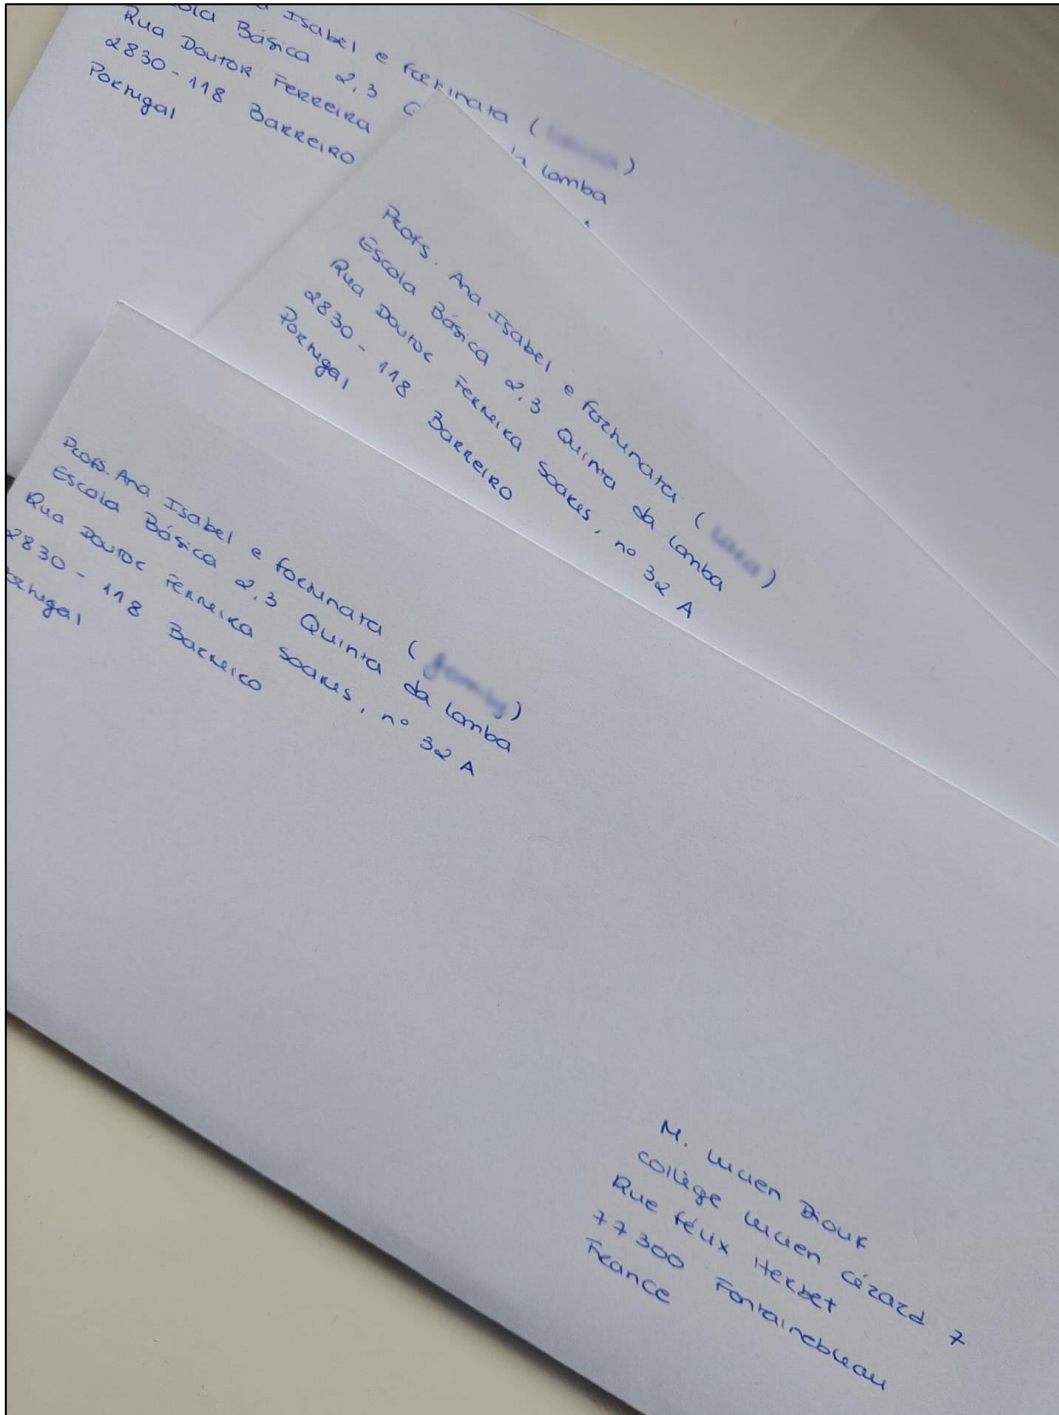 Isabel e Fortunata ( )
Escola Básica 2,3
da Lomba
Rua Doutor Ferreira
2830-118 Barreiro
Portugal
Profs. Ana Isabel e Fortunata ( )
Escola Básica 2,3 Quinta da Lomba
Rua Doutor Ferreira Soares, nº 32 A
2830 - 118 Barreiro
Portugal
Profs. Ana Isabel e Fortunata ( )
Escola Básica 2,3 Quinta da Lomba
Rua Doutor Ferreira Soares, nº 32 A
2830 - 118 Barreiro
Portugal
M. Lucien Diouf
Collège Lucien Cézard 7
Rue Félix Herbet
77300 Fontainebleau
France